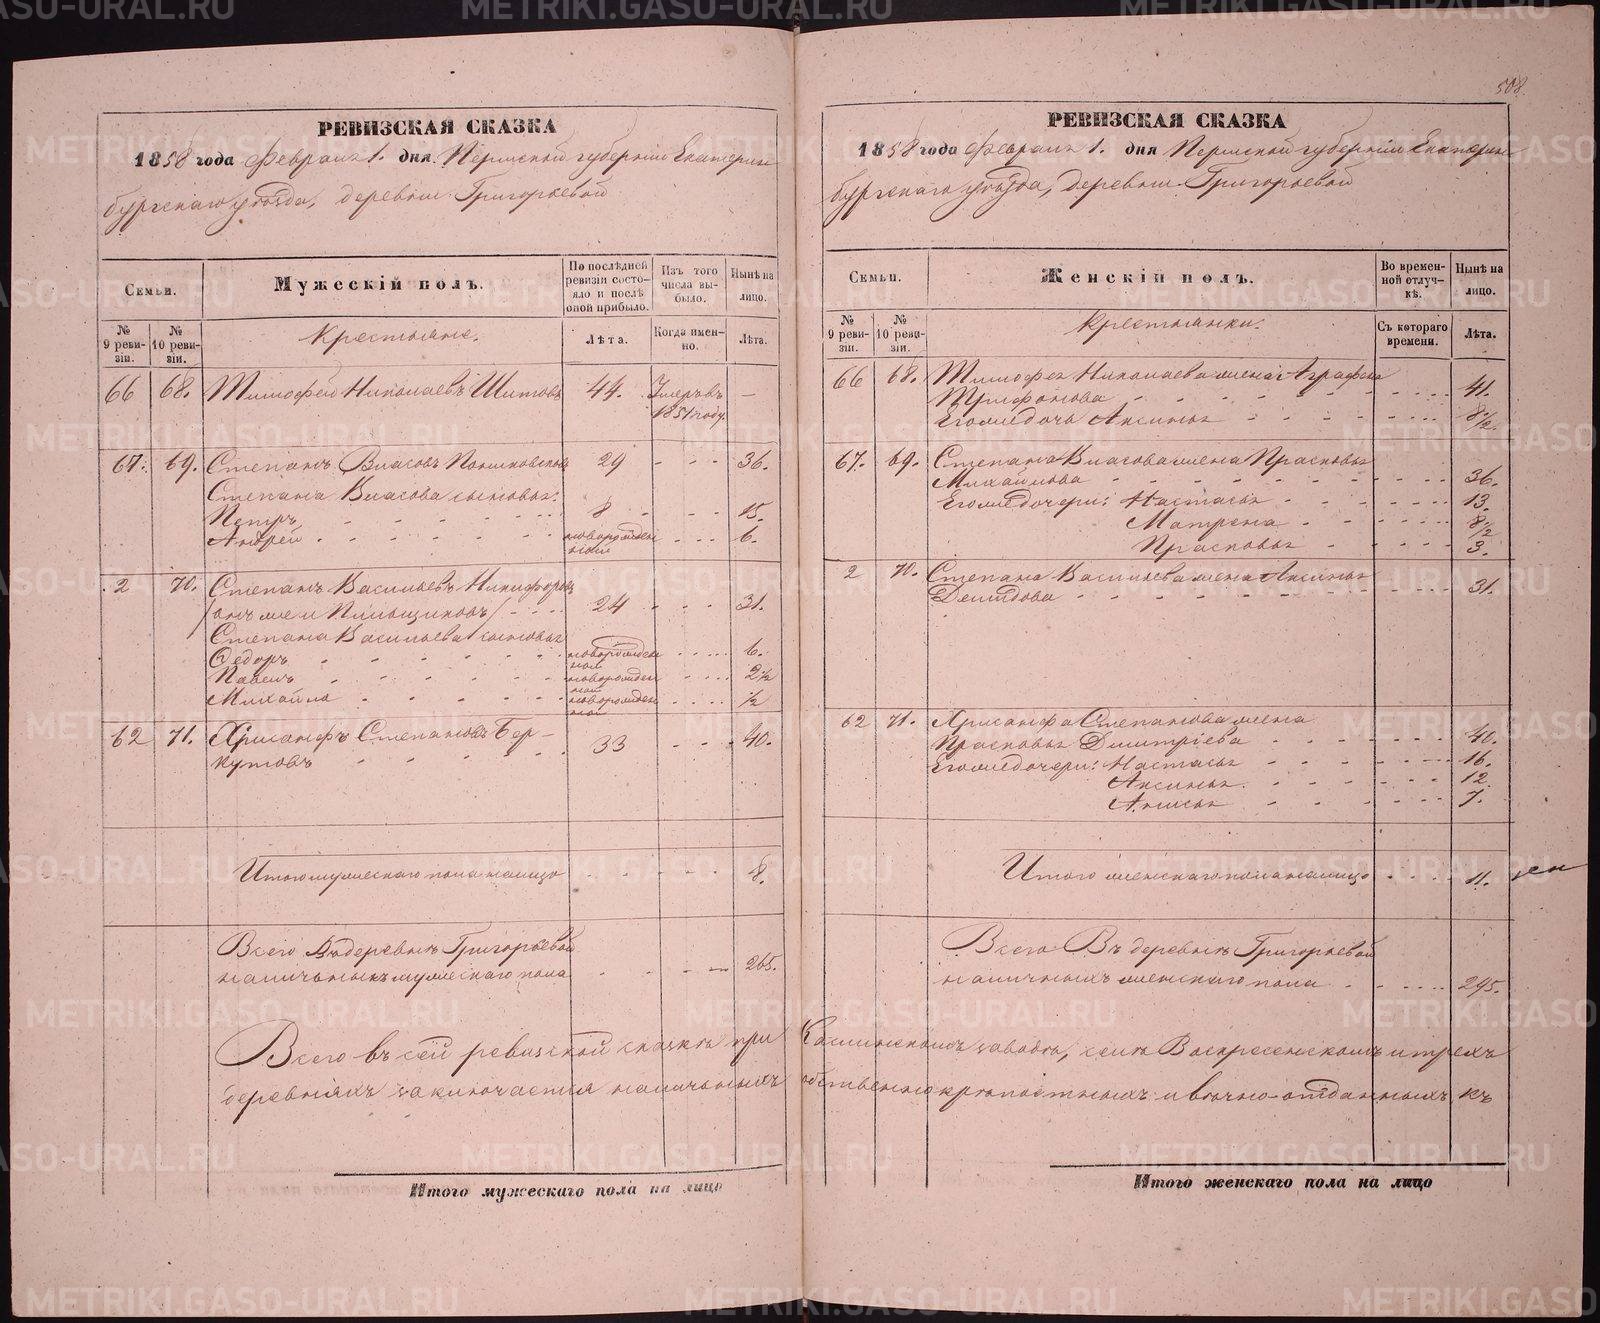 508
РЕВИЗСКАЯ СКАЗКА
1858 года Февраля 1. дня, Пермской губернiи Екатерин-
бургскаго уѣзда, деревни Григорьевой
Семьи.
Мужескiй полъ.
По послѣдней ревизiи состо-яло и послѣ оной прибыло.
Изъ того числа вы-было.
Нынѣ на лицо.
№ 9 реви-зiи.
№ 10 реви-зiи.
Крестьяне.
Лѣта.
Когда имен-но.
Лѣта.
66 68. Тимофей Николаевъ Шитовъ 44. Умеръ въ —
1851 году.
67. 69. Степанъ Власовъ 29 - - - 36.
Степана Власова сыновья:
Петръ 8 - - 15.
Андрей новорожден 6.
ной
2 70. Степанъ Васильевъ Никифоровъ
/онъ же и Пильщиковъ/ 24 - - - 31.
Степана Васильева сыновья
Ѳедоръ новорожден 6.
ной
Павелъ новорожден 2½
ной
Михайла новорожден ½
ной
62 71. Хрисанфъ Степановъ Бер-
кутовъ 33 - - - 40.
Итого мужескаго пола налицо 8.
Всего въ деревнѣ Григорьевой
наличныхъ мужескаго пола 265.
Всего въ сей ревизской сказкѣ при
деревняхъ заключается наличныхъ
Итого мужескаго пола на лицо
РЕВИЗСКАЯ СКАЗКА
1858 года Февраля 1. дня Пермской губернiи Екатерин-
бургскаго уѣзда, деревни Григорьевой
Семьи.
Женскiй полъ.
Во времен-ной отлуч-кѣ.
Нынѣ на лицо.
№ 9 реви-зiи.
№ 10 реви-зiи.
Крестьянки.
Съ котораго времени.
Лѣта.
66 68. Тимофея Николаева жена Аграфена
Трифонова 41.
Его же дочь Аксинья 8½
67. 69. Степана Власова жена Прасковья
Михайлова 36.
Его же дочери: Настасья 13.
Матрена 8½
Прасковья 3.
2 70. Степана Васильева жена Аксинья
Демидова 31.
62 71. Хрисанфа Степанова жена
Прасковья Дмитрiева 40.
Его же дочери: Настасья 16.
Аксинья 12
Анисья 7.
Итого женскаго пола налицо 11.
Всего Въ деревнѣ Григорьевой
наличныхъ женскаго пола 295.
Каслинскомъ заводѣ, селѣ Воскресенскомъ и трехъ
собственно крѣпостныхъ и вѣчно-отданныхъ къ
Итого женскаго пола на лицо
METRIKI.GASO-URAL.RU